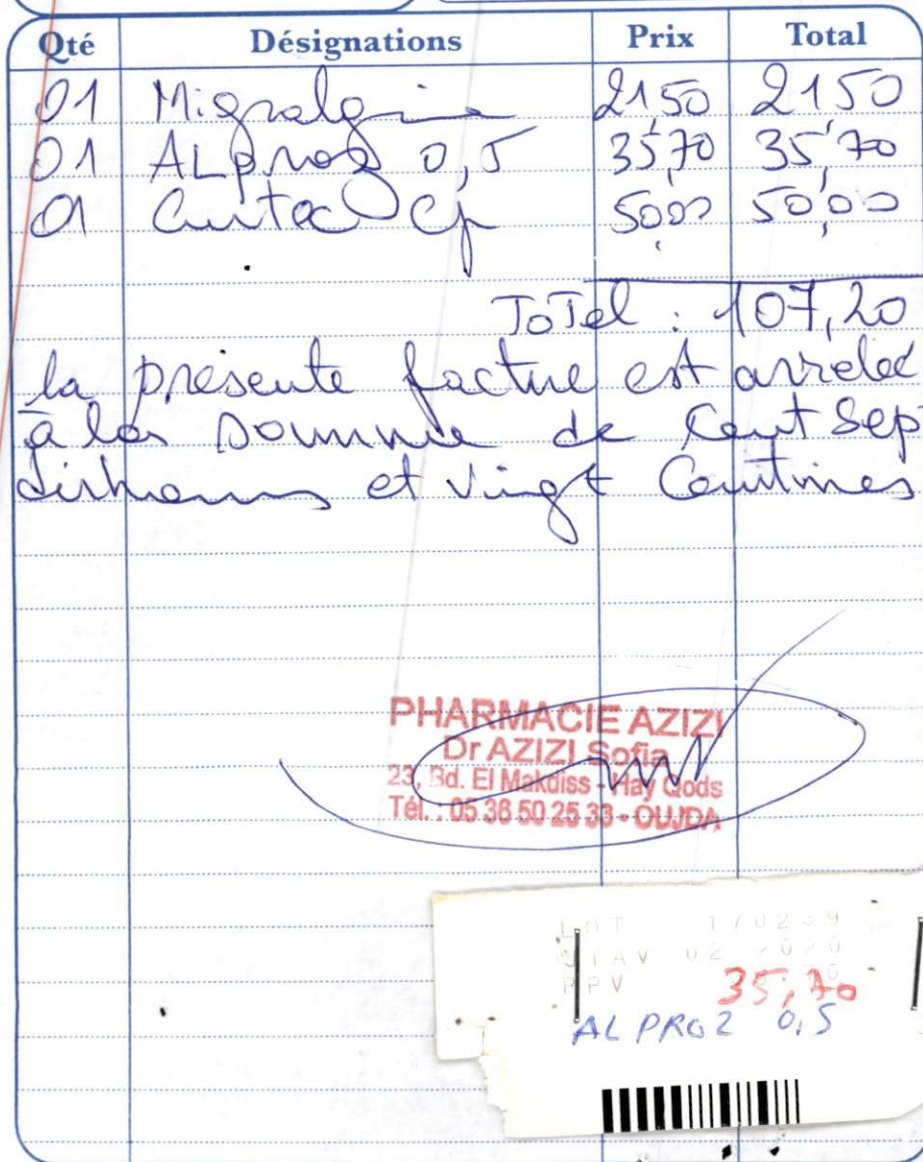 Qté Désignations Prix Total
01 Migralgine 21,50 21,50
01 ALproz 0,5 35,70 35,70
01 Cp 50,00 50,00
ToTal : 107,20
la présente facture est arretée
à la Somme de Cent Sept
dirhams et vingt Centimes
PHARMACIE AZIZI
Dr AZIZI Sofia
23, Bd. El Makdiss - Hay Qods
Tél. : 05 36 50 25 33 - OUJDA
LOT 170239
UTAV 02 2020
PPV 35,70
ALPROZ 0,5